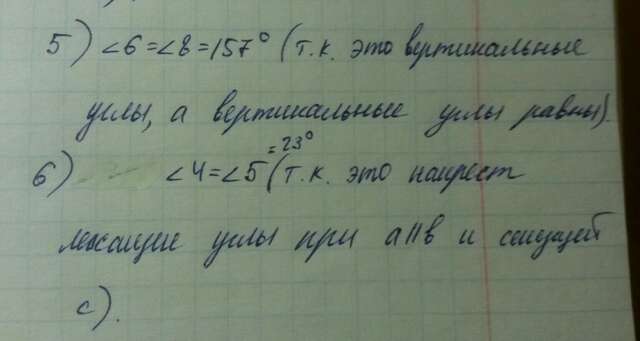 5) ∠6=∠8=157° (т.к. это вертикальные
углы, а вертикальные углы равны).
6) ∠4=∠5=23° (т.к. это накрест
лежащие углы при a||b и секущей
c).